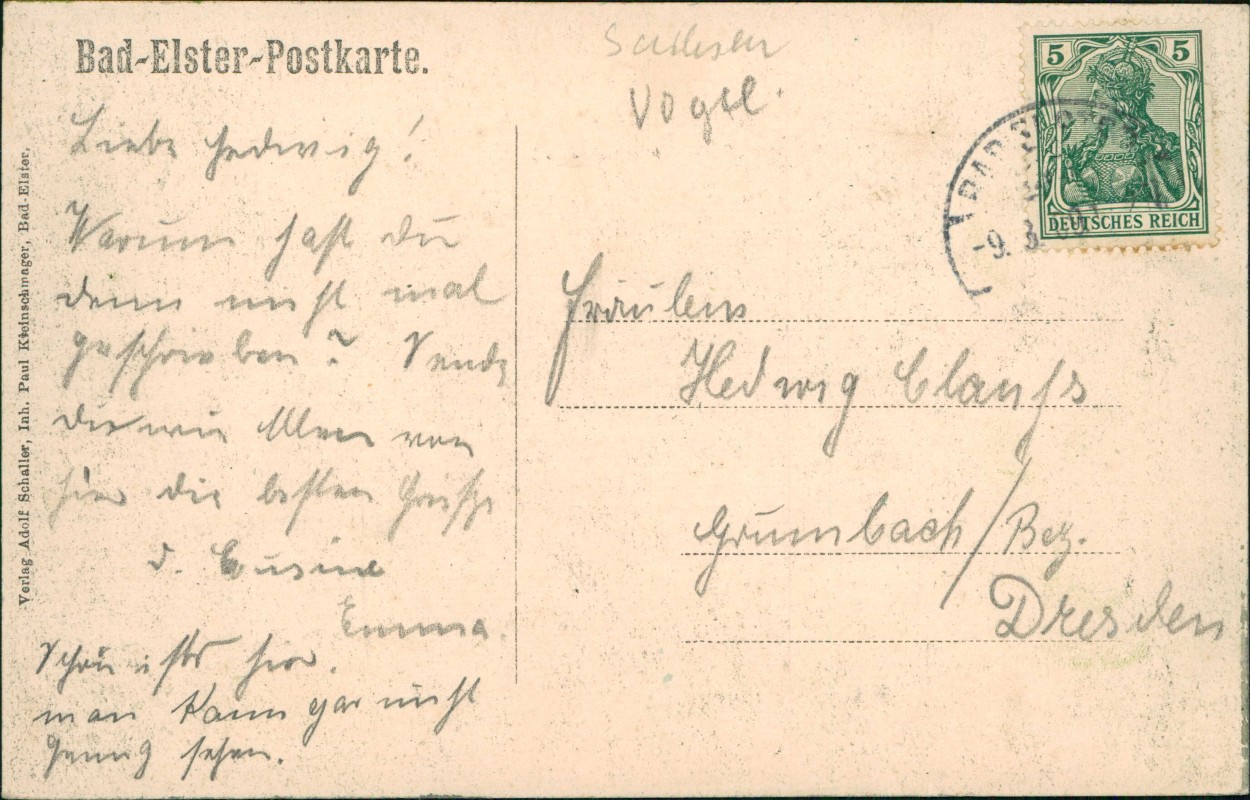 Bad-Elster-Postkarte.
Sachsen
Vogtl.
5 5
DEUTSCHES REICH
BAD ELSTER
-9. 8.
Verlag Adolf Schaller, Inh. Paul Kleinschmager, Bad-Elster.
Liebe Hedwig!
Warum hast du
denn nicht mal
geschrieben? Sende
dir wie Allen von
hier die besten Grüße
d. Cusine
Emma.
Schön ists hier.
man kann gar nicht
genug sehen.
Fräulein
Hedwig Clauß
Grumbach / Bez.
Dresden